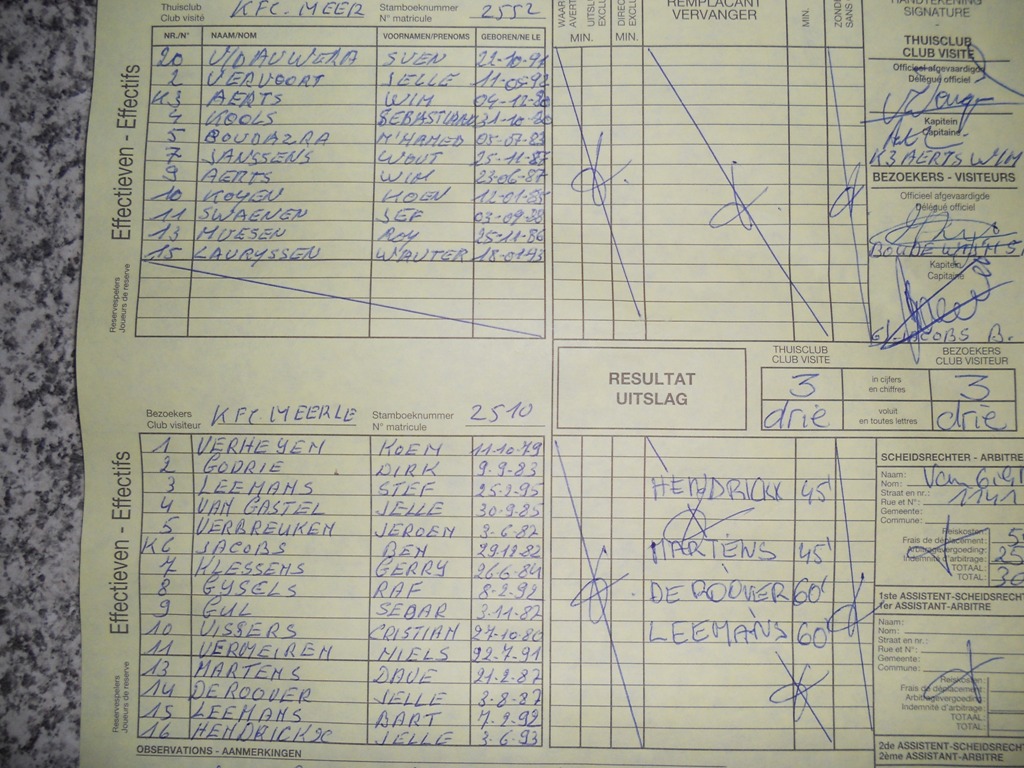 Thuisclub KFC. MEER Stamboeknummer 2552
Club visité N° matricule
NR./N° NAAM/NOM VOORNAMEN/PRENOMS GEBOREN/NE LE
20 V/DAUWERA SVEN
2 VERVOORT JELLE 11-05-92
K3 AERTS WIM
4 KOOLS SEBASTIAN
5 BOUDAZRA M'HAMED 05-07-83
7 JANSSENS WOUT 25-11-87
9 AERTS WIM 23-06-87
10 KOYEN KOEN 12-01-85
11 SWAENEN JEF
13 MUESEN ROY 25-11-86
15 LAURYSSEN WOUTER
Effectieven - Effectifs
Reservespelers
Joueurs de reserve
MIN. MIN.
REMPLAÇANT
VERVANGER
MIN.
SIGNATURE
THUISCLUB
CLUB VISITE
Officieel afgevaardigde
Délégué officiel
Kapitein
Capitaine
K3 AERTS WIM
BEZOEKERS - VISITEURS
Officieel afgevaardigde
Délégué officiel
Kapitein
Capitaine
6/JACOBS B.
RESULTAT
UITSLAG
THUISCLUB BEZOEKERS
CLUB VISITE CLUB VISITEUR
3 in cijfers 3
en chiffres
drie voluit drie
en toutes lettres
Bezoekers KFC. MEERLE Stamboeknummer 2510
Club visiteur N° matricule
1 VERHEYEN KOEN 11-10-79
2 GODRIE DIRK 9-9-83
3 LEEMANS STEF 25-2-95 HENDRICKX 45'
4 VAN GASTEL JELLE 30-9-85
5 VERBREUKEN JEROEN 3-6-82
K6 JACOBS BEN 29-12-82 MARTENS 45'
7 KLESSENS GERRY 26-6-84
8 GYSELS RAF 8-2-92 DE ROOVER 60'
9 GUL SEBAR 3-11-87
10 VISSERS CRISTIAN 27-10-80 LEEMANS 60'
11 VERMEIREN NIELS 22-7-91
13 MARTENS DAVE 21-2-87
14 DE ROOVER JELLE 3-8-87
15 LEEMANS BART 7-2-92
16 HENDRICKX JELLE 3-6-93
Effectieven - Effectifs
Reservespelers
Joueurs de reserve
OBSERVATIONS - AANMERKINGEN
SCHEIDSRECHTER - ARBITRE
Naam:
Nom:
Straat en nr.:
Rue et N°:
Gemeente:
Commune:
Reiskosten
Frais de déplacement:
Arbitragevergoeding:
Indemnité d'arbitrage:
TOTAAL:
TOTAL:
1ste ASSISTENT-SCHEIDSRECH
1er ASSISTANT-ARBITRE
Naam:
Nom:
Straat en nr.:
Rue et N°:
Gemeente:
Commune:
Reiskosten
Frais de déplacement:
Arbitragevergoeding:
Indemnité d'arbitrage:
TOTAAL:
TOTAL:
2de ASSISTENT-SCHEIDSR
2ème ASSISTANT-ARBITRE